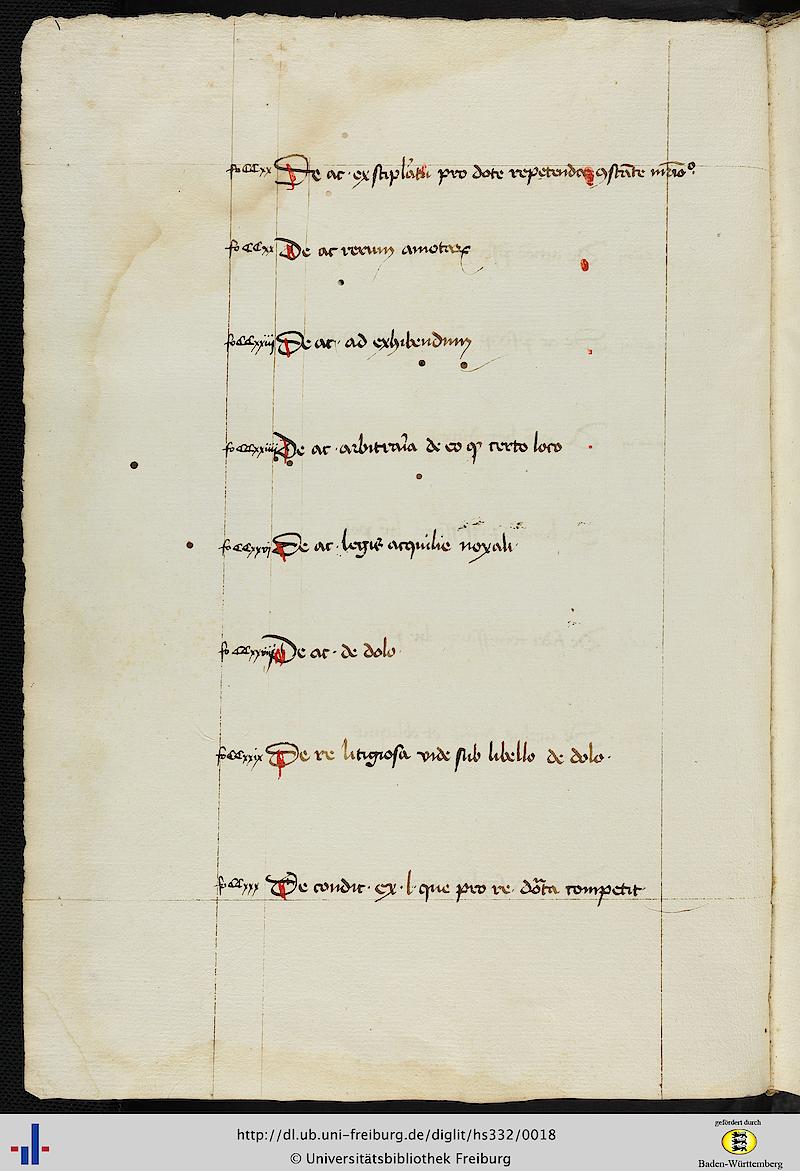 fo CCxx De ac · ex stiplatu pro dote repetenda ɔstāte mr̄io°
fo CCxx De ac rerum amotaꝝ
fo CCxxiij De ac · ad exhibendum
fo CCxxiiij De ac · arbitraria de eo ꝙ certo loco
fo CCxxvj De ac · legis acquilie noxali
fo CCxxviij De ac · de dolo
fo CCxxix De re litigiosa vide sub libello de dolo ·
fo CCxxx De condic · ex · l · que pro re · dōta competit
http://dl.ub.uni-freiburg.de/diglit/hs332/0018
© Universitätsbibliothek Freiburg
gefördert durch
Baden-Württemberg